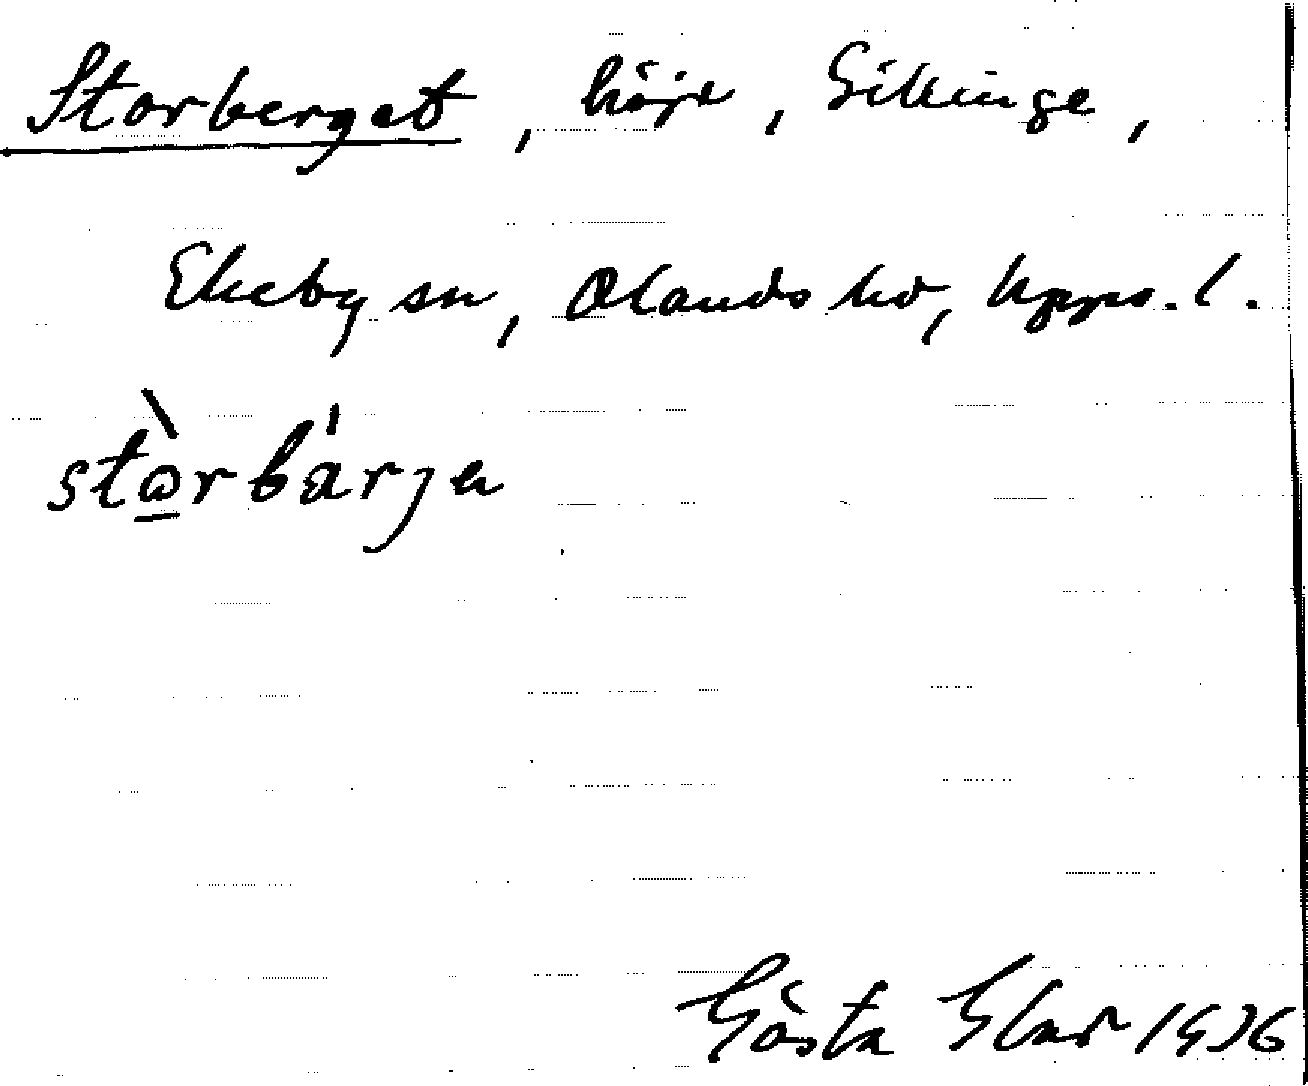 Storberget, höjd, Gillinge,
Ekeby sn, Olands hd, Upps. l.
stòrbárjen
Gösta 1936